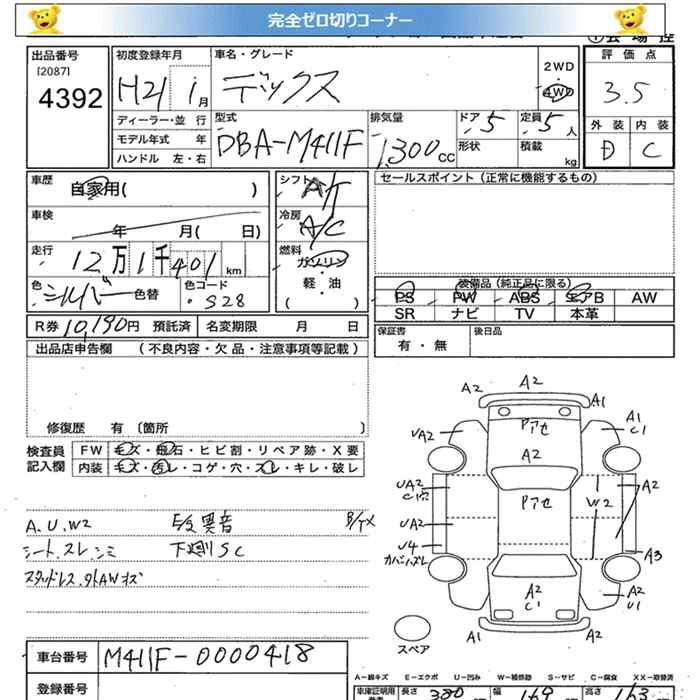 完全ゼロ切りコーナー
出品番号
[2087]
4392
初度登録年月
H21 1月
車名・グレード
デックス
2WD
4WD
評価点
3.5
ディーラー・並 行
モデル年式 年
ハンドル 左・右
型式
DBA-M411F
排気量
1,300cc
ドア 5
定員 5人
形状
積載
kg
外装 内装
D C
車歴
自家用( )
シフト
AT
セールスポイント(正常に機能するもの)
車検
年 月( 日)
冷房
A/C
走行
12万1千401km
燃料
ガソリン
軽・油
( )
色
シルバー 色替
色コード
S28
装備品(純正品に限る)
PS PW ABS エアB AW
SR ナビ TV 本革
R券 10,190円 預託済
名変期限 月 日
保証書
有・無
後日品
出品店申告欄 (不良内容・欠品・注意事項等記載)
修復歴 有〔箇所 〕
検査員
記入欄
FW キズ・飛石・ヒビ割・リペア跡・X要
内装 キズ・汚レ・コゲ・穴・スレ・キレ・破レ
A.U.W2
シート.スレ.シミ
スタッドレス.外AWキズ
下廻SC
異音
A2
A2
A1
Pアセ
UA2
A1
C1
A2
Pアセ
UA2
W2
A2
UA2
U4
A3
A2
C1
A2
U1
A1
A2
スペア
車台番号
M411F-0000418
登録番号
A-線キズ E-エクボ U-凹み W-補修跡 S-サビ C-腐食 XX-取替済
車庫証明用
長さ 380
幅 169
高さ 163